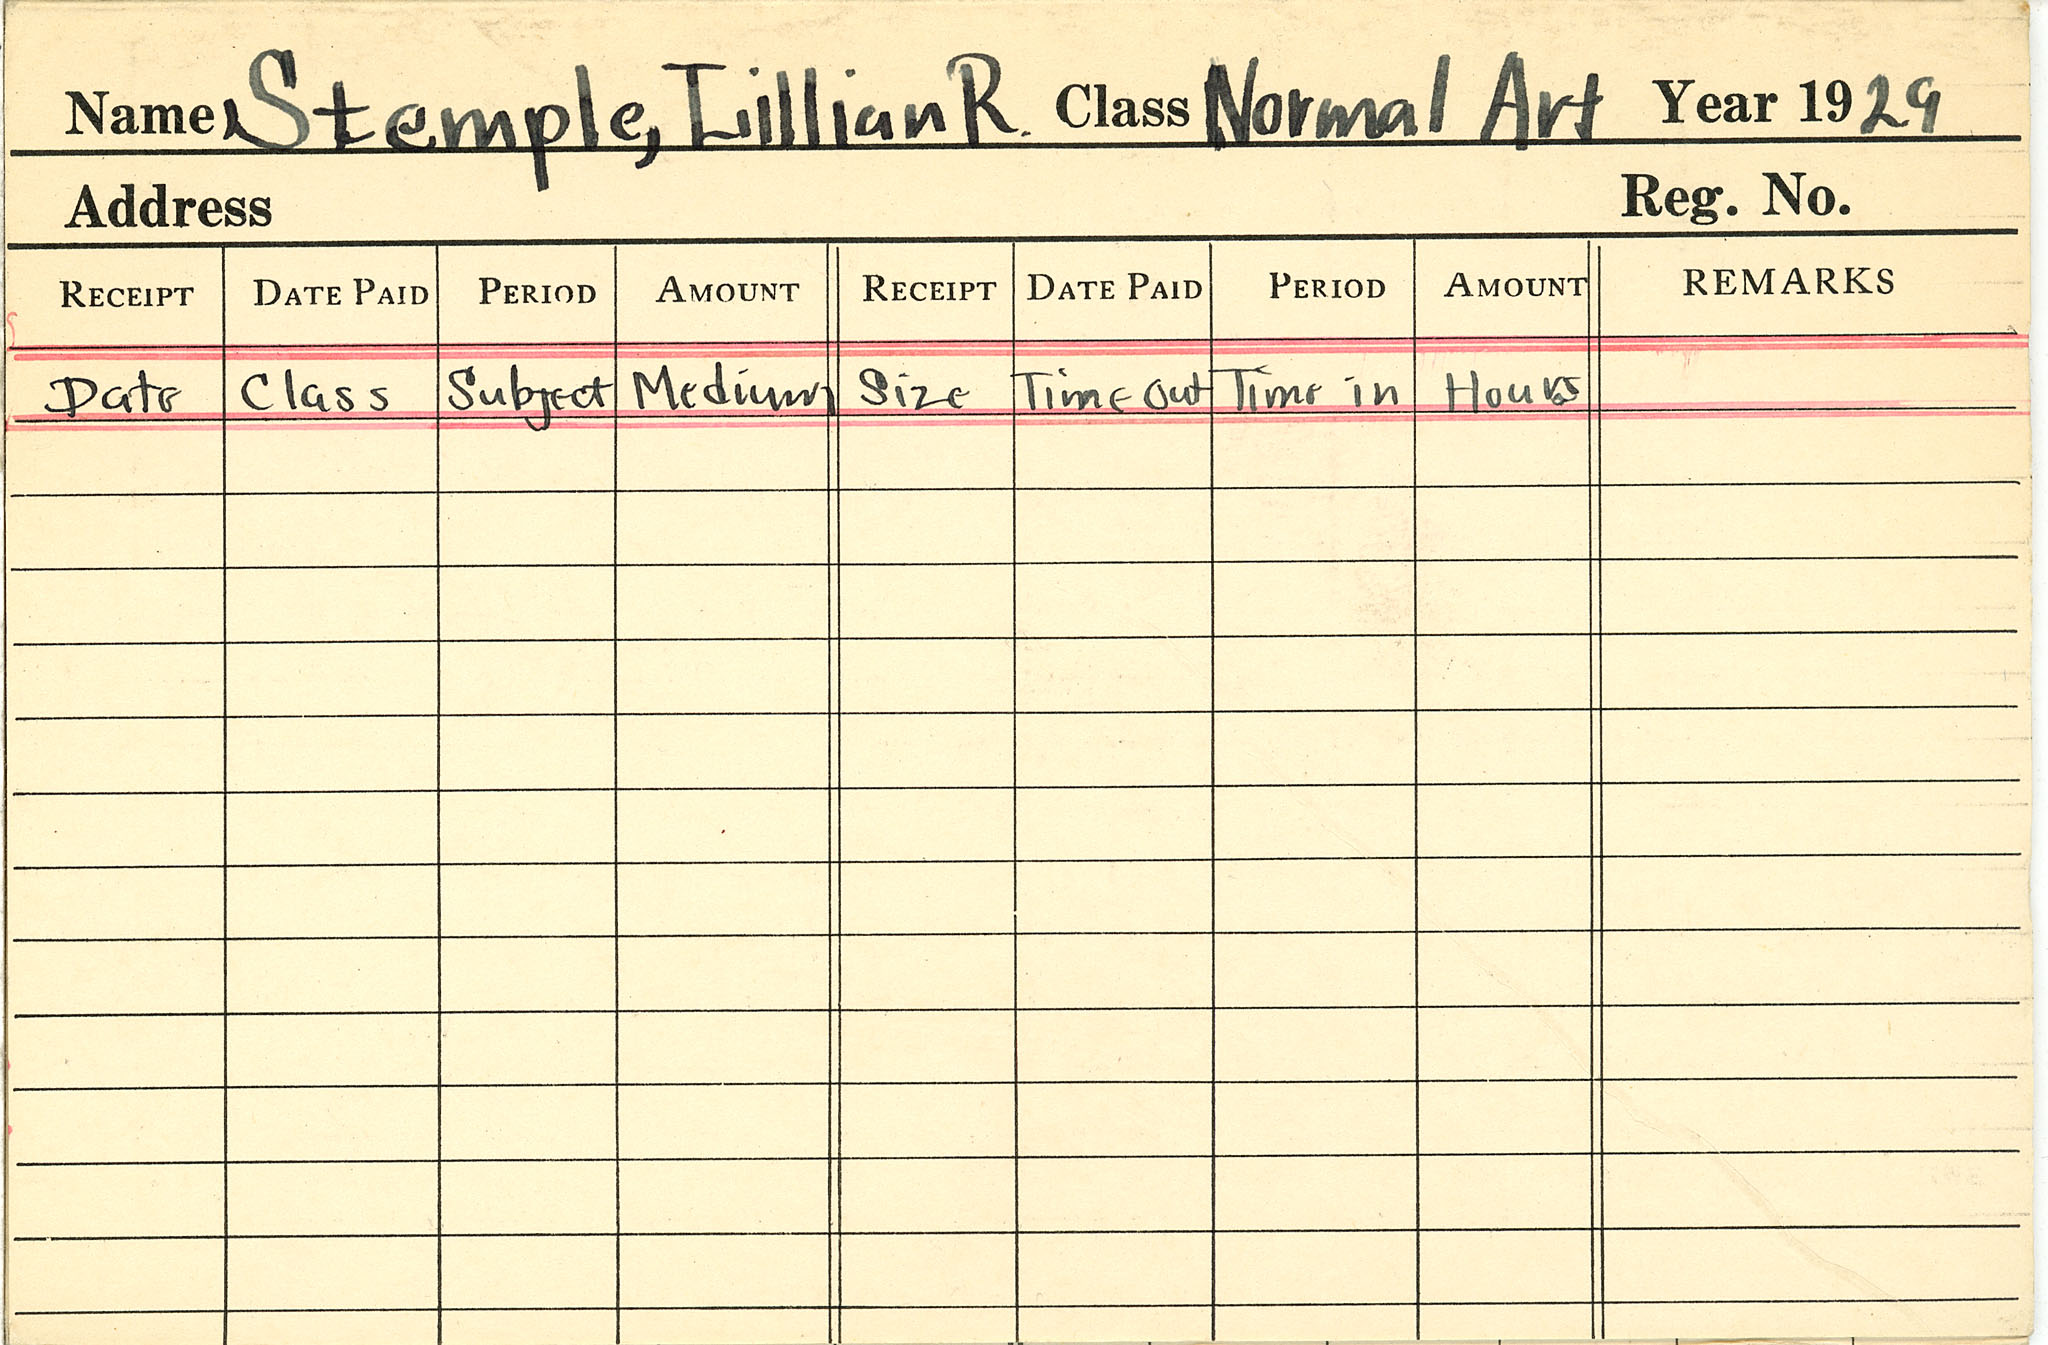 Name Stemple, Lillian R. Class Normal Art Year 1929
Address Reg. No.
RECEIPT DATE PAID PERIOD AMOUNT RECEIPT DATE PAID PERIOD AMOUNT REMARKS
Date Class Subject Medium Size Time out Time in Hours